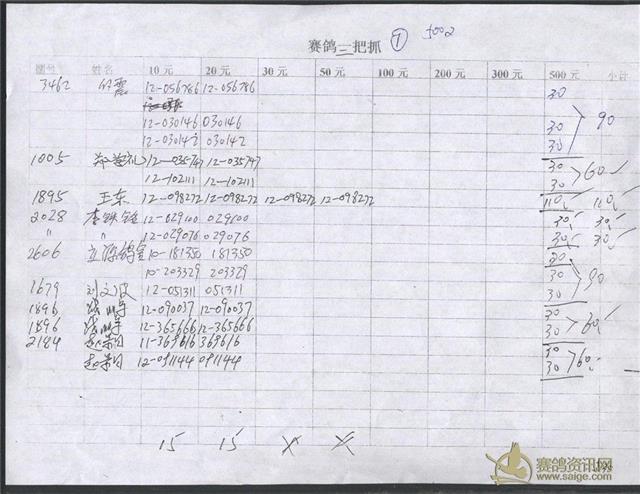 赛鸽三把抓 ① 1002
圈号 姓名 10元 20元 30元 50元 100元 200元 300元 500元 小计
3462 12-056786 12-056786 30
12-030146 030146 30 90
12-030142 030142 30
1005 12-035747 12-035747 30
12-102111 12-102111 30 60
1895 王东 12-098272 12-098272 12-098272 12-098272 110 110
2028 李铁锤 12-029100 029100 30 30
" " 12-029076 029076 30 30
2606 10-181350 181350 30
10-203329 203329 30 90
1679 刘文波 12-051311 051311 30
1896 12-090037 12-090037 30
1896 12-365666 12-365666 30 60
2184 11-369616 369616 30
12-091144 091144 30 60
15 15 × ×
赛鸽资讯网
www.saige.com